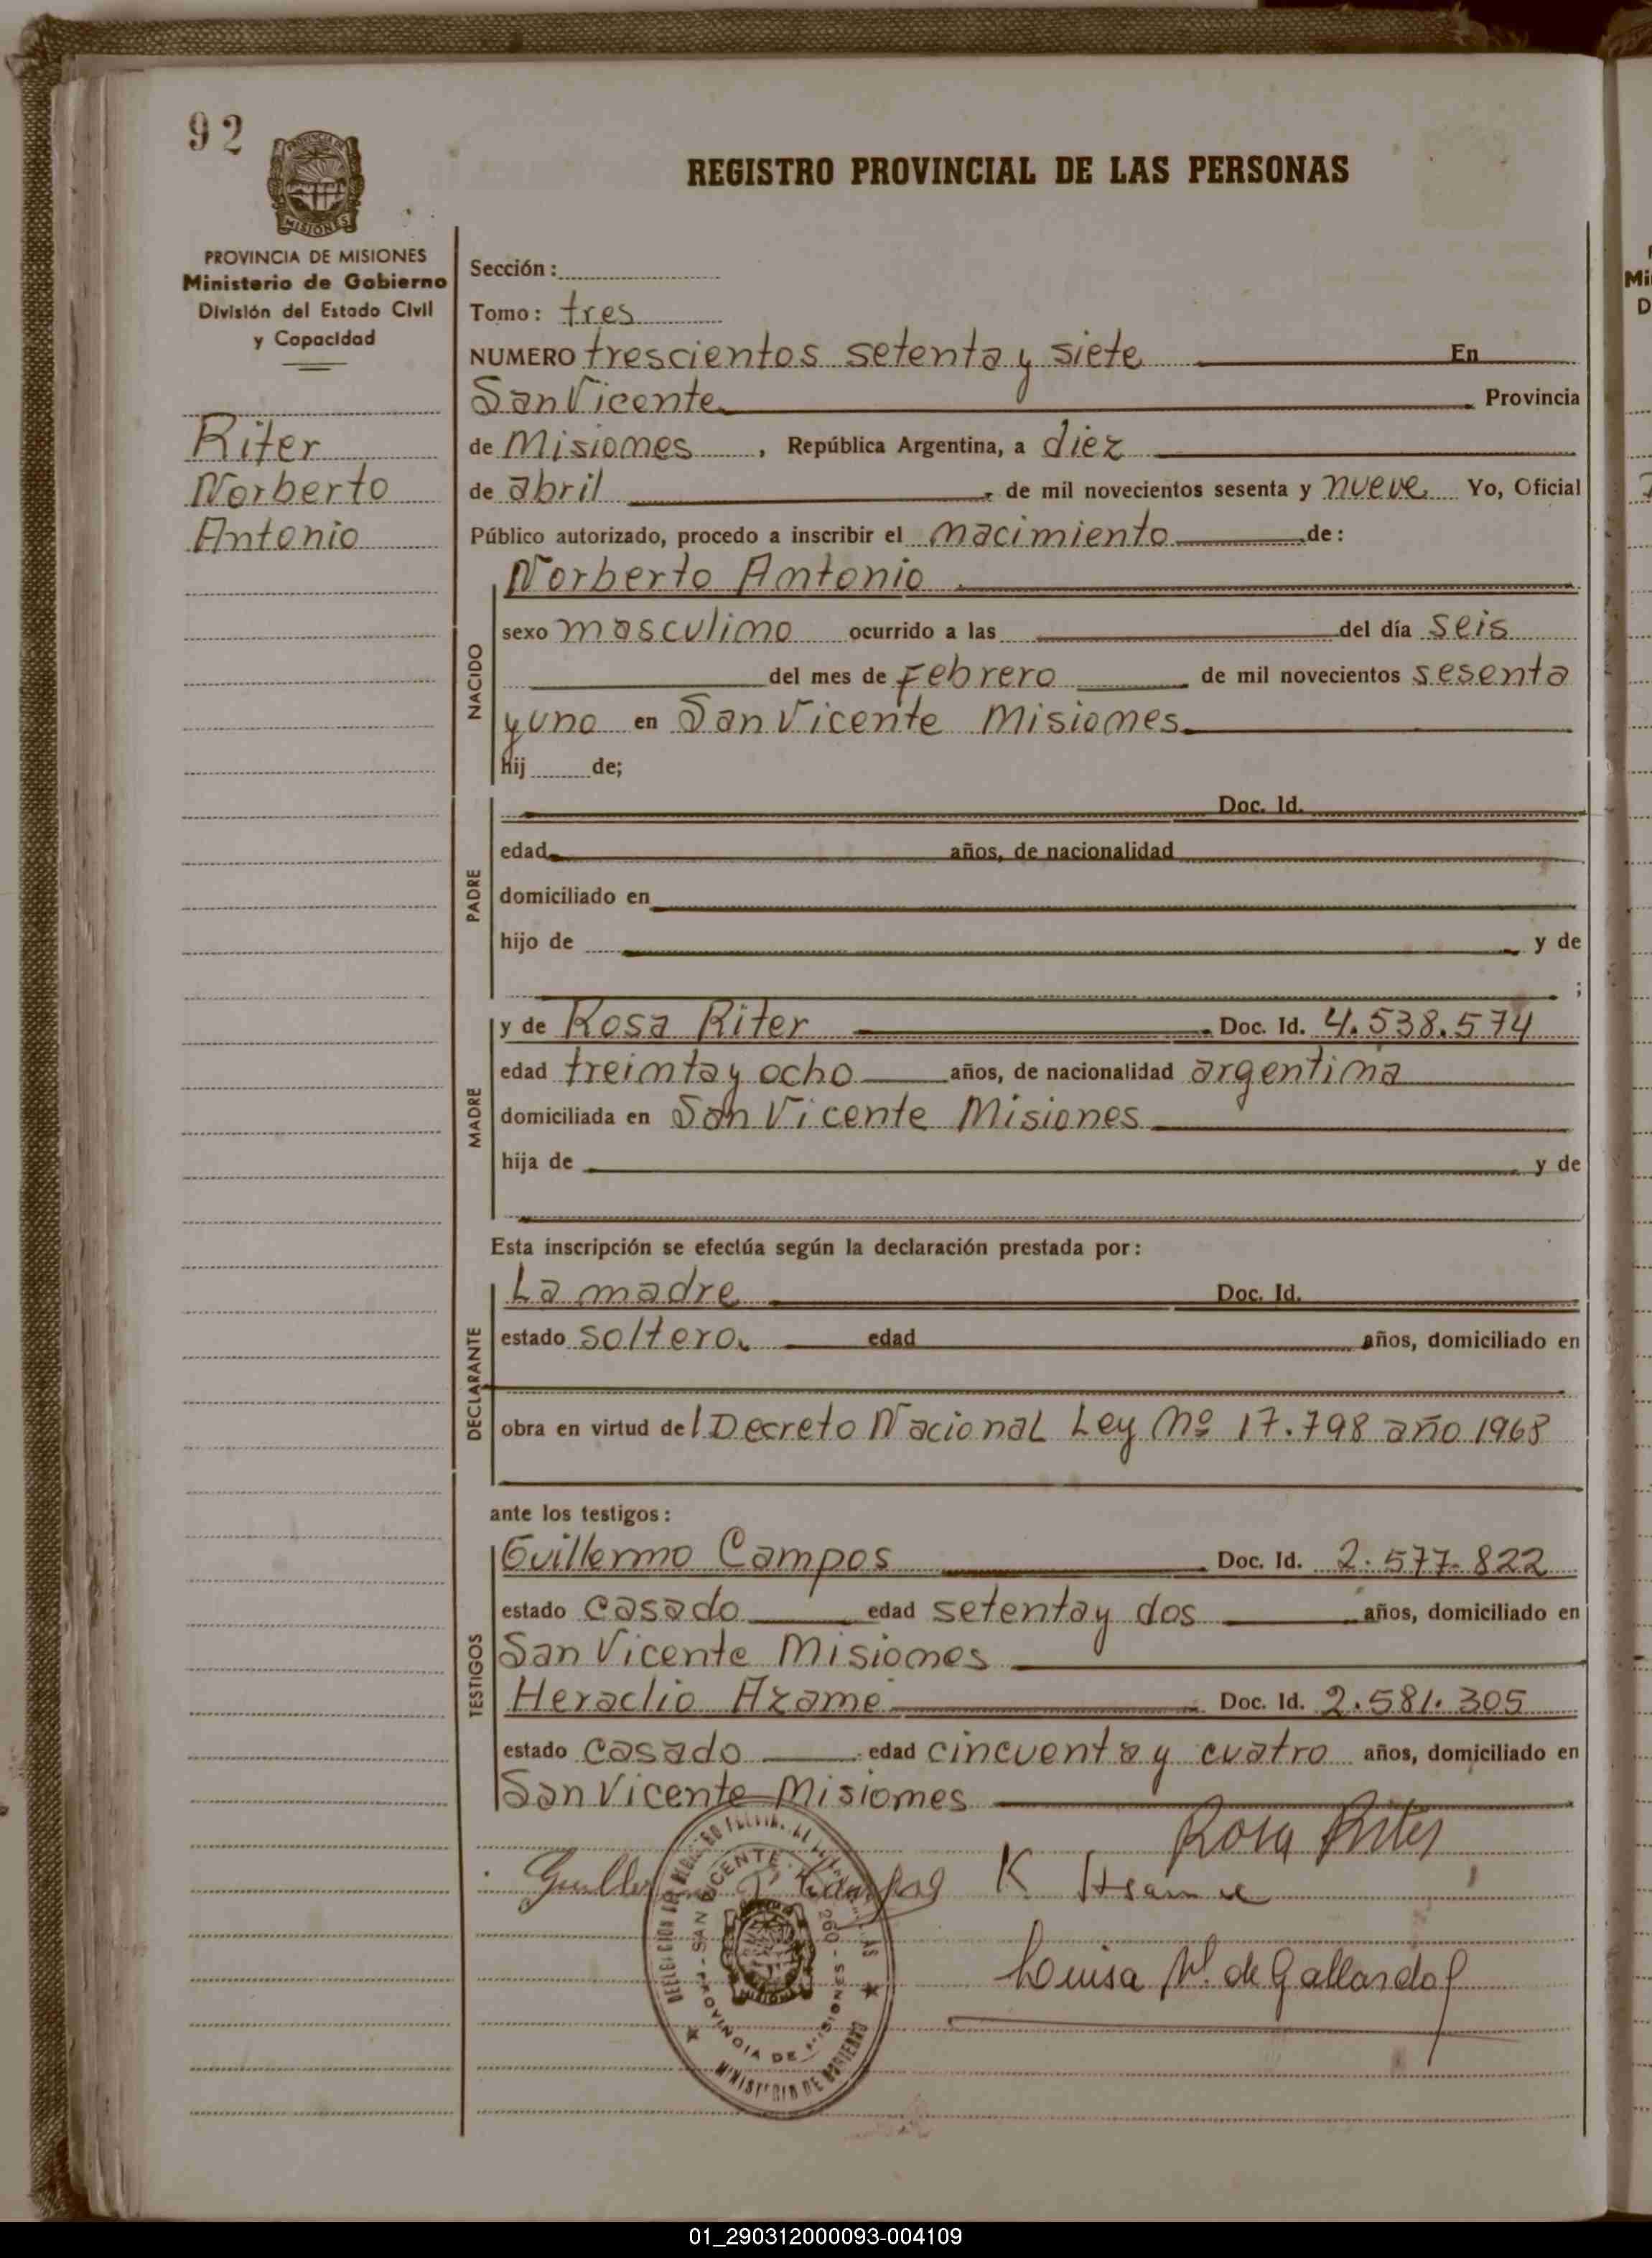 92
REGISTRO PROVINCIAL DE LAS PERSONAS
PROVINCIA DE MISIONES
Ministerio de Gobierno
División del Estado Civil
y Capacidad
Riter
Norberto
Antonio
Sección:
Tomo: tres
NUMERO trescientos setenta y siete En
San Vicente Provincia
de Misiones, República Argentina, a diez
de abril, de mil novecientos sesenta y nueve Yo, Oficial
Público autorizado, procedo a inscribir el nacimiento de:
NACIDO
Norberto Antonio
sexo masculino ocurrido a las del día seis
del mes de Febrero de mil novecientos sesenta
y uno en San Vicente Misiones
hij de;
PADRE
Doc. Id.
edad años, de nacionalidad
domiciliado en
hijo de y de
;
MADRE
y de Rosa Riter Doc. Id. 4.538.574
edad treinta y ocho años, de nacionalidad argentina
domiciliada en San Vicente Misiones
hija de y de
Esta inscripción se efectúa según la declaración prestada por:
DECLARANTE
La madre Doc. Id.
estado soltera edad años, domiciliado en
obra en virtud del Decreto Nacional Ley Nº 17.798 año 1968
ante los testigos:
TESTIGOS
Guillermo Campos Doc. Id. 2.577.822
estado casado edad setenta y dos años, domiciliado en
San Vicente Misiones
Heraclio Azame Doc. Id. 2.581.305
estado casado edad cincuenta y cuatro años, domiciliado en
San Vicente Misiones
Rosa Riter
Campos K
Louisa W. de Gallardo
SAN VICENTE
260 - PROVINCIA DE MISIONES
MINISTERIO DE GOBIERNO
MISIONES
01_290312000093-004109